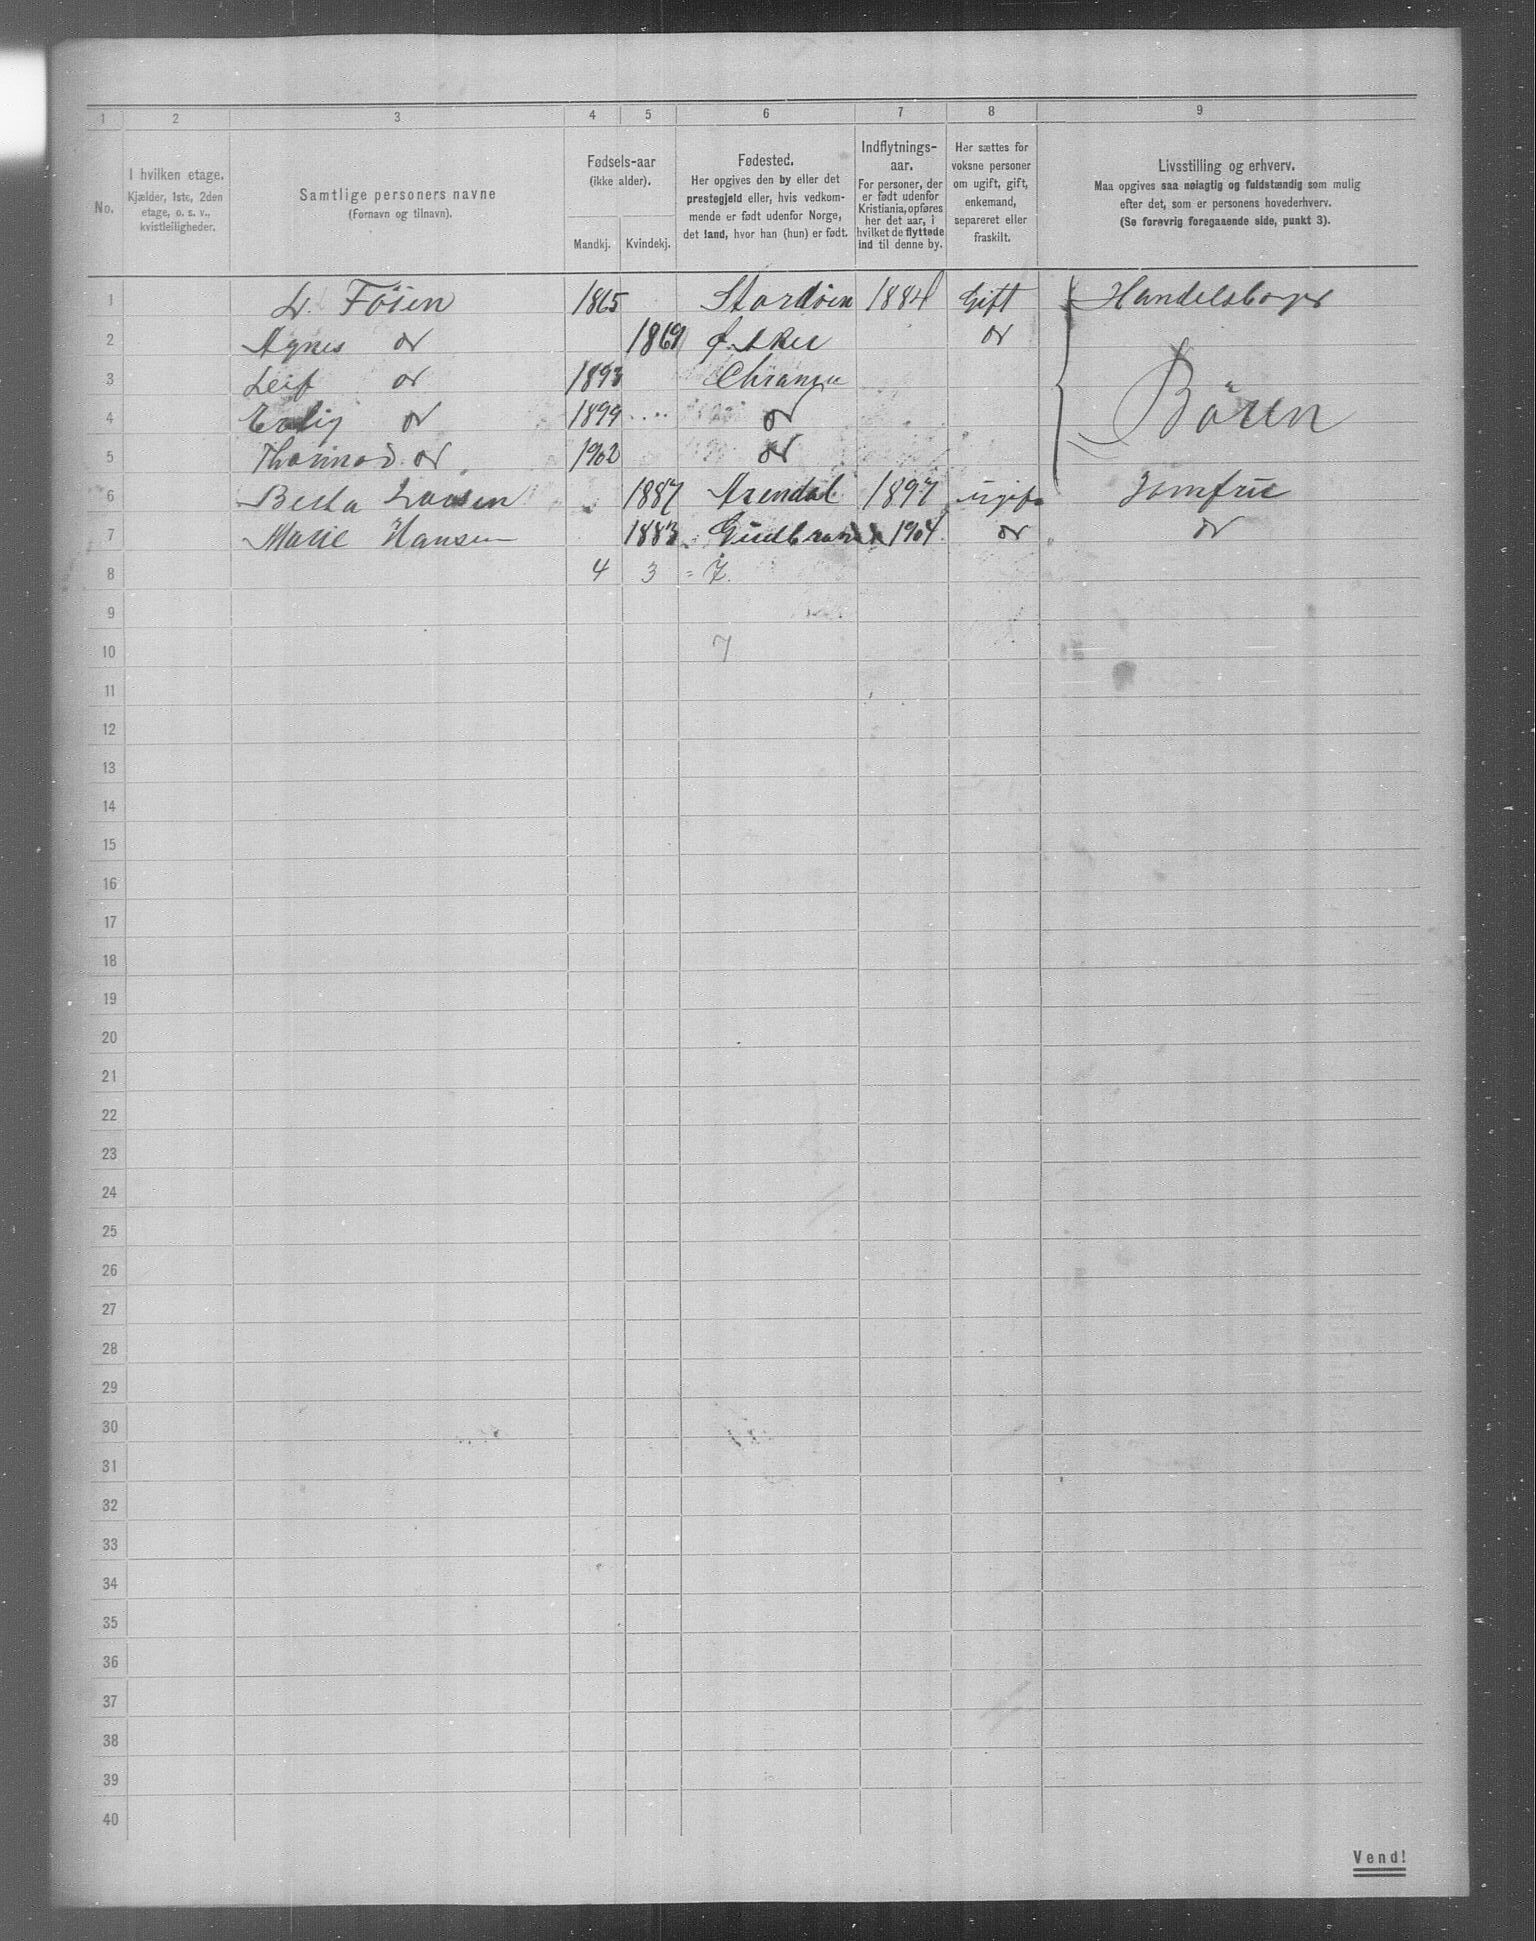 1 2 3 4 5 6 7 8 9
No.
I hvilken etage.
Kjælder, 1ste, 2den
etage, o. s. v.,
kvistleiligheder.
Samtlige personers navne
(Fornavn og tilnavn).
Fødsels-aar
(ikke alder).
Mandkj. Kvindekj.
Fødested.
Her opgives den by eller det
prestegjeld eller, hvis vedkom-
mende er født udenfor Norge,
det land, hvor han (hun) er født.
Indflytnings-
aar.
For personer, der
er født udenfor
Kristiania, opføres
her det aar, i
hvilket de flyttede
ind til denne by.
Her sættes for
voksne personer
om ugift, gift,
enkemand,
separeret eller
fraskilt.
Livsstilling og erhverv.
Maa opgives saa nøiagtig og fuldstændig som mulig
efter det, som er personens hovederhverv.
(Se forøvrig foregaaende side, punkt 3).
1 Fösen 1865 Stordöen 1884 Gift Handelsborger
2 Agnes do 1869 Ø. Aker do
3 Leif do 1893
4 do 1899 do Bören
5 do 1902 do
6 Larsen 1887 Arendal 1897 ugift Jomfrue
7 Marie Hansen 1883 1904 do do
8 4 3 = 7.
9
10 7
11
12
13
14
15
16
17
18
19
20
21
22
23
24
25
26
27
28
29
30
31
32
33
34
35
36
37
38
39
40
Vend!